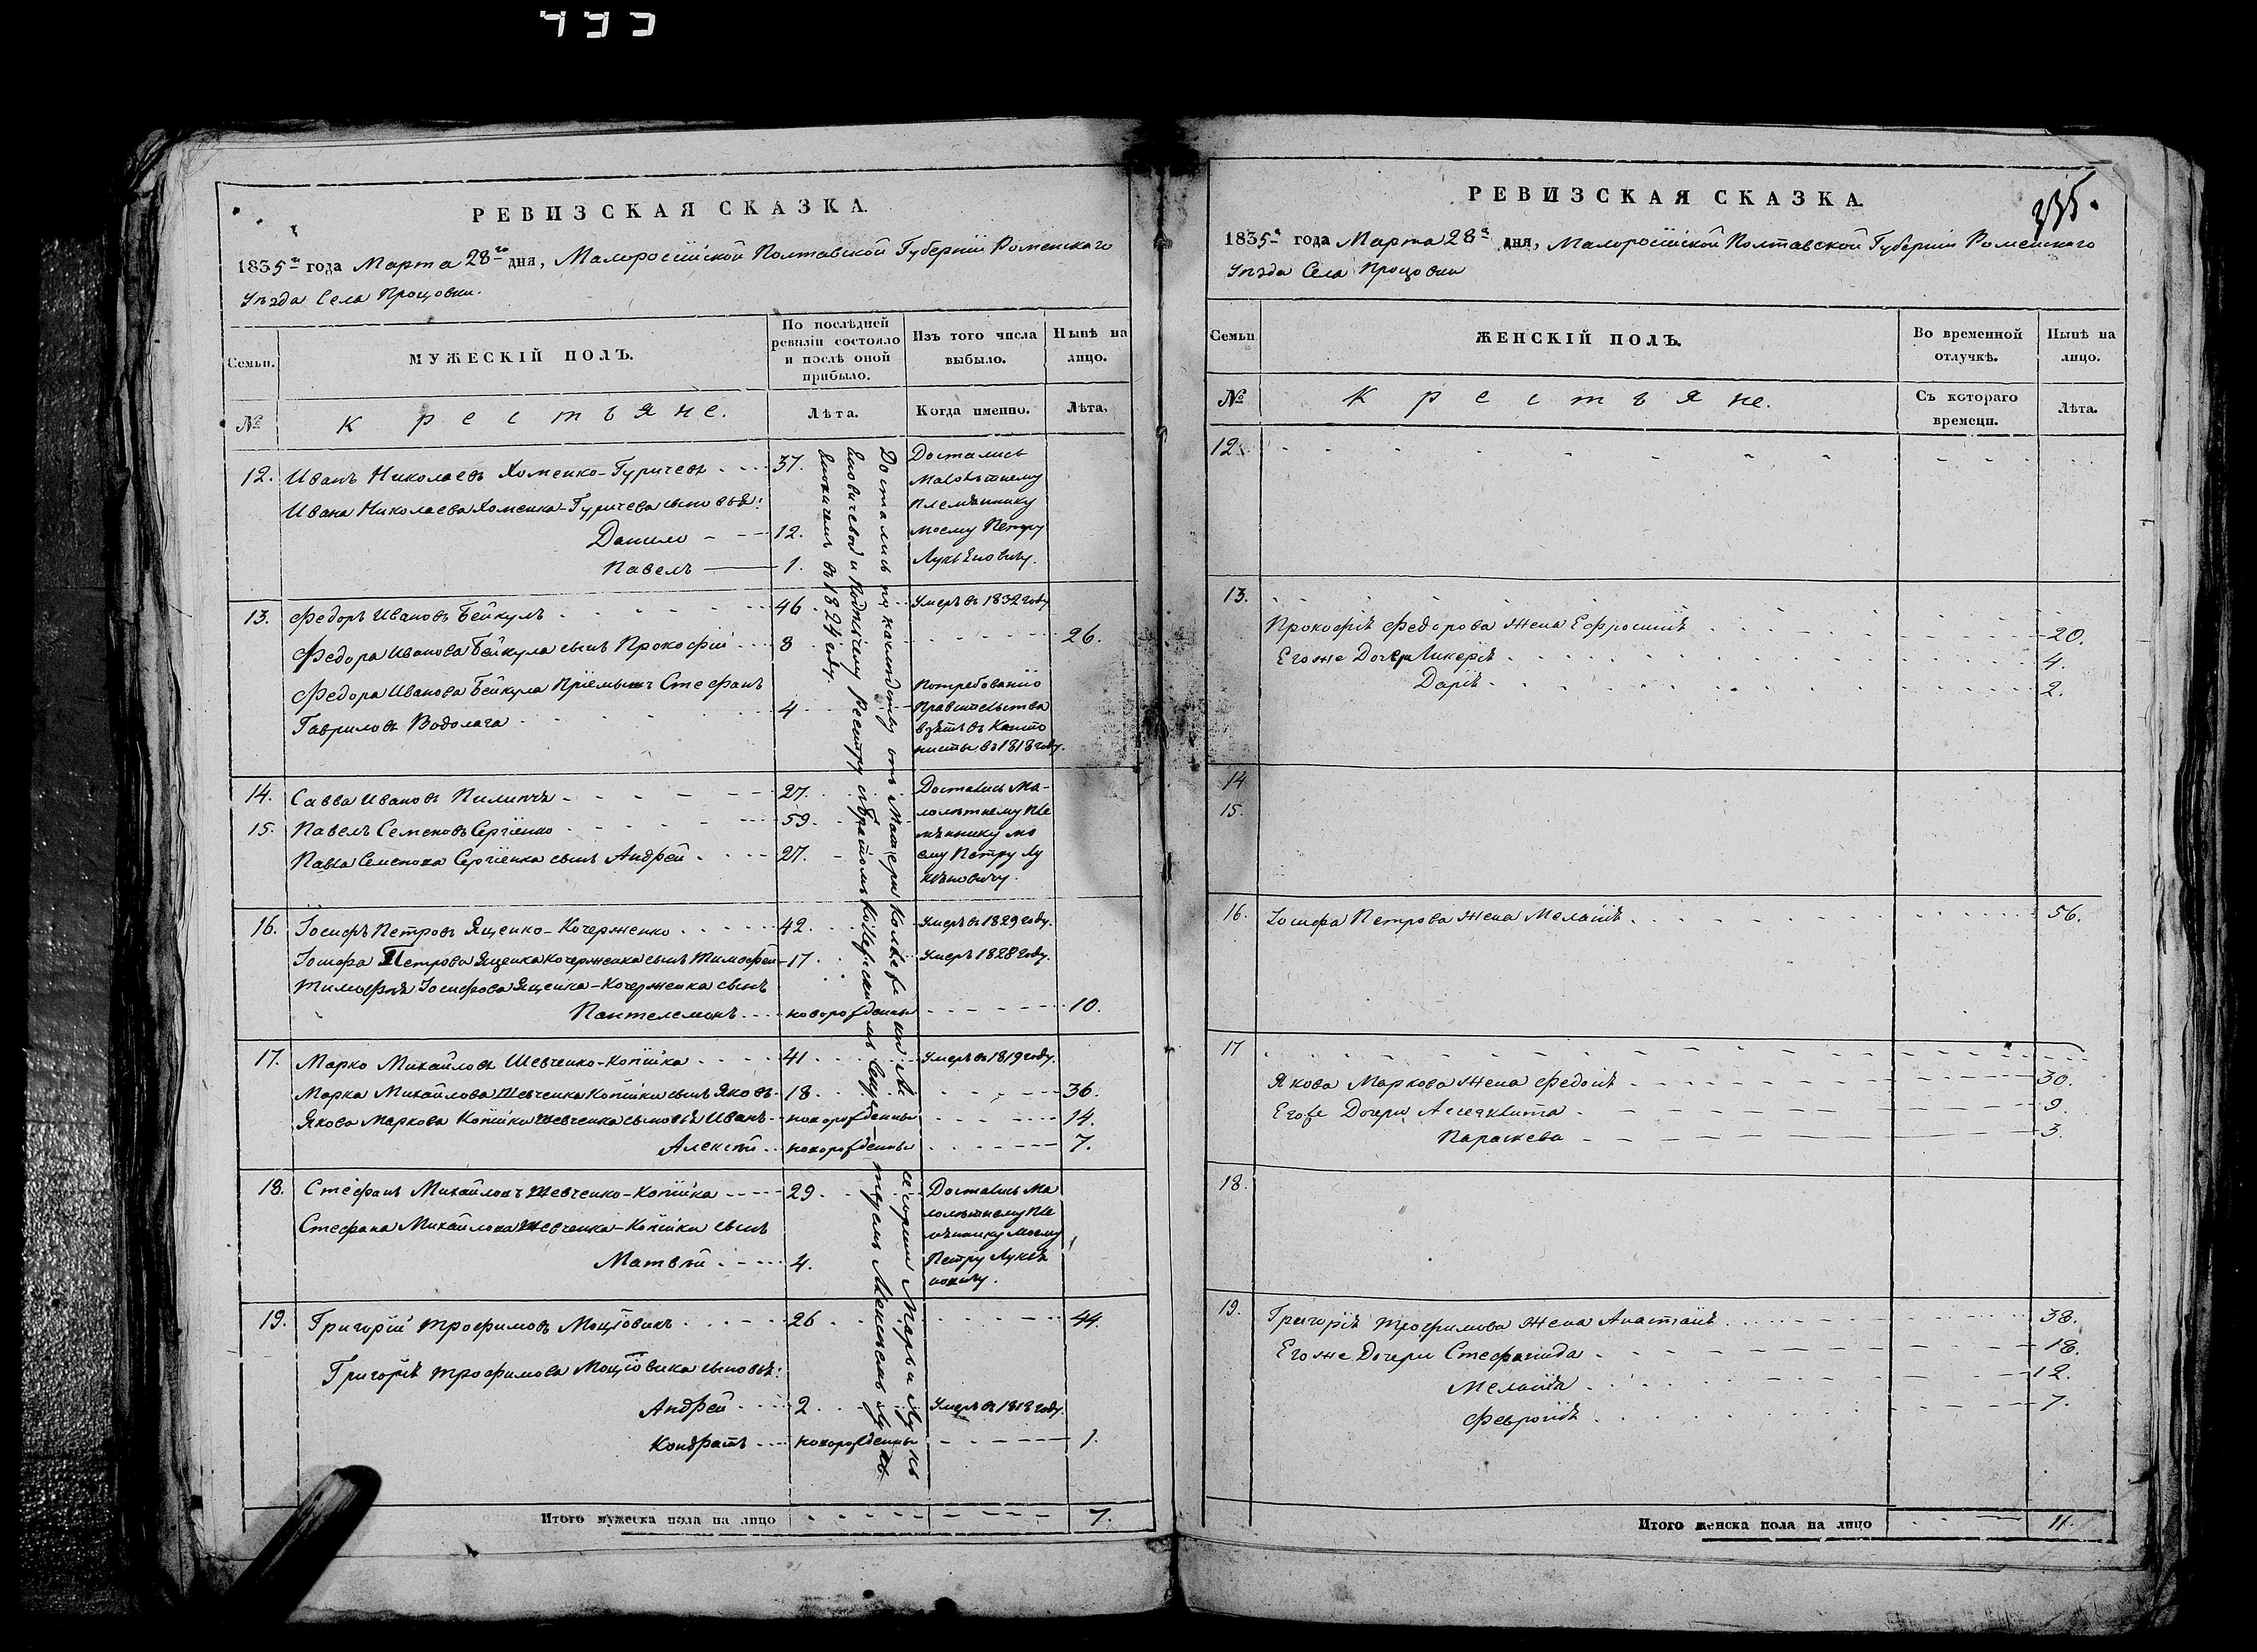 РЕВИЗСКАЯ СКАЗКА.
1835го года Марта 28го дня, Малоросійской Полтавской Губерніи Роменскаго
Уѣзда Села Процовки.
Семьи.
МУЖЕСКІЙ ПОЛЪ.
По послѣдней ревизіи состояло и послѣ оной прибыло.
Изъ того числа выбыло.
Нынѣ на лицо.
№
Крестьяне.
Лѣта.
Когда именно.
Лѣта.
12. Иванъ Николаевъ Хоменко-Гуричевъ 37. Достались
Малолѣтнему
Ивана Николаева Хоменка-Гуричева сыновья: Племяннику
Данило 12. моему Петру
Павелъ 1. Лукьяновичу.
13. Федоръ Ивановъ Бейкулъ 46. Умеръ въ 1832 году
Федора Иванова Бейкула сынъ Прокофій 8 26.
Федора Иванова Бейкула Пріемышъ Стефанъ Потребованію
Гавриловъ Водолага 4 Правительства
взятъ въ Канто
нисты въ 1818 году.
14. Савва Ивановъ Пилипчъ 27. Достались Ма-
лолѣтнему Пле
15. Павелъ Семеновъ Сергіенко 59. мяннику мо
Павла Семенова Сергіенка сынъ Андрей 27. ему Петру Лу
кьяновичу.
16. Іосифъ Петровъ Ященко-Кочерженко 42. Умеръ въ 1829 году.
Іосифа Петрова Ященка Кочерженка сынъ Тимофей 17. Умеръ 1828 году.
Тимофѣя Іосифова Ященка-Кочерженка сынъ
Пантелемонъ новорожденны 10.
17. Марко Михайловъ Шевченко-Копійка 41. Умеръ въ 1819 году.
Марка Михайлова Шевченка Копійки сынъ Яковъ 18. 36.
Якова Маркова Копійки Шевченка сыновья Иванъ новорожденны 14.
Алексѣй новорожденны 7.
18. Стефанъ Михайловъ Шевченко-Копійка 29. Достались Ма
лолѣтнему Пле
Стефана Михайлова Шевченка-Копійки сынъ мяннику Моему
Матвѣй 4. Петру Лукья
новичу.
19. Григорій Трофимовъ Моцовикъ 26 44.
Григорія Трофимова Моцовика сыновья:
Андрей 2. Умеръ въ 1818 году.
Кондратъ новорожденны 1.
Достались по наслѣдству отъ Матери Коллежской Ас
сесорши Марьи Лукь
яновичевой и Подѣлному Реестру съ братомъ Коллежскимъ Секре
таремъ
яновичемъ въ 1824 году
Итого мужеска пола на лицо 7.
РЕВИЗСКАЯ СКАЗКА.
335.
1835го года Марта 28го дня, Малоросійской Полтавской Губерніи Роменскаго
Уѣзда Села Процовки
Семьи
ЖЕНСКІЙ ПОЛЪ.
Во временной отлучкѣ.
Нынѣ на лицо.
№
Крестьяне.
Съ котораго времени.
Лѣта.
12.
13.
Прокофія Федорова жена Ефросинія 20.
Его же Дочери Ликерія 4.
Дарія 2.
14
15.
16. Іосифа Петрова жена Меланія 56.
17
Якова Маркова жена Федосія 30.
Его же Дочери 9.
Параскева 3.
18.
19. Григорія Трофимова жена Анастасія 38.
Его же Дочери Стефанида 18.
Меланія 12.
Февронія 7.
Итого женска пола на лицо 11.